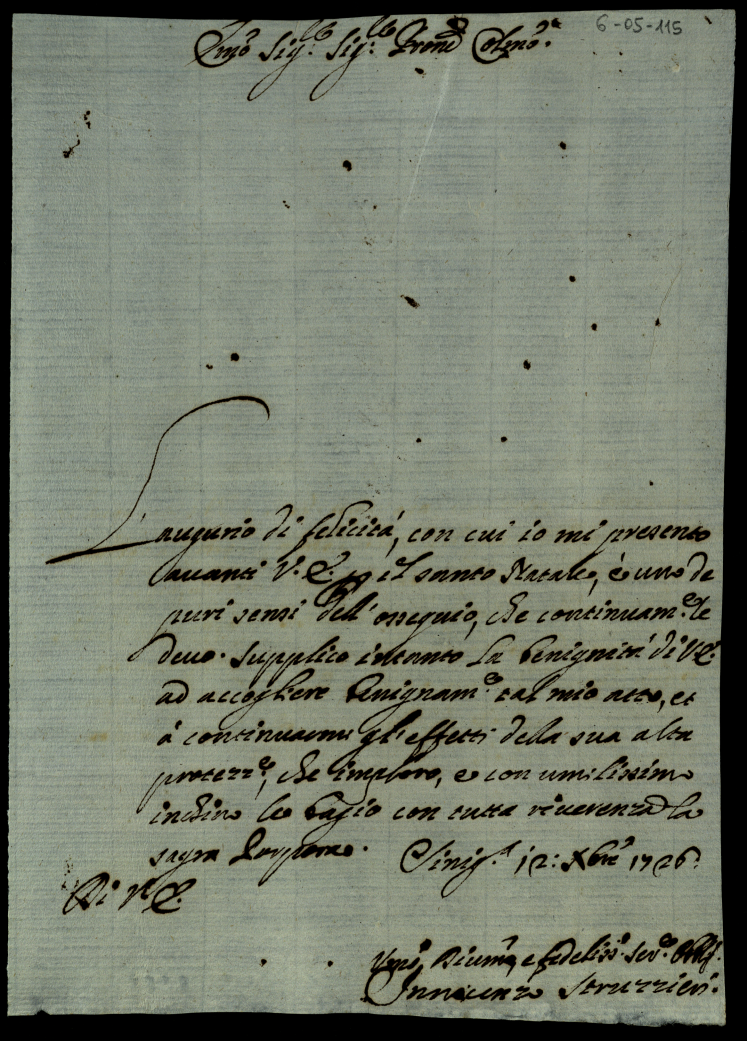 6-05-115
Emo Sig.re Sig.re Prone Colmo.
L'augurio di felicità, con cui io mi presento
avanti V.E. p il santo Natale, è uno de
puri sensi dell'ossequio, che continuam.e le
devo. Supplico intanto la benignità di V.E.
ad accogliere benignam.e tal mio atto, et
à continuarmi gl'effetti della sua alta
protezz.e, che imploro, e con umilissimo
inchino le bagio con tutta riverenza la
sagra Porpora. Sinig.a 12: Xbre 1726.
Di V.E.
Umo, Divmo, e fedeliss.o Ser.e Obblig.
Innocenzo Struzzieri.